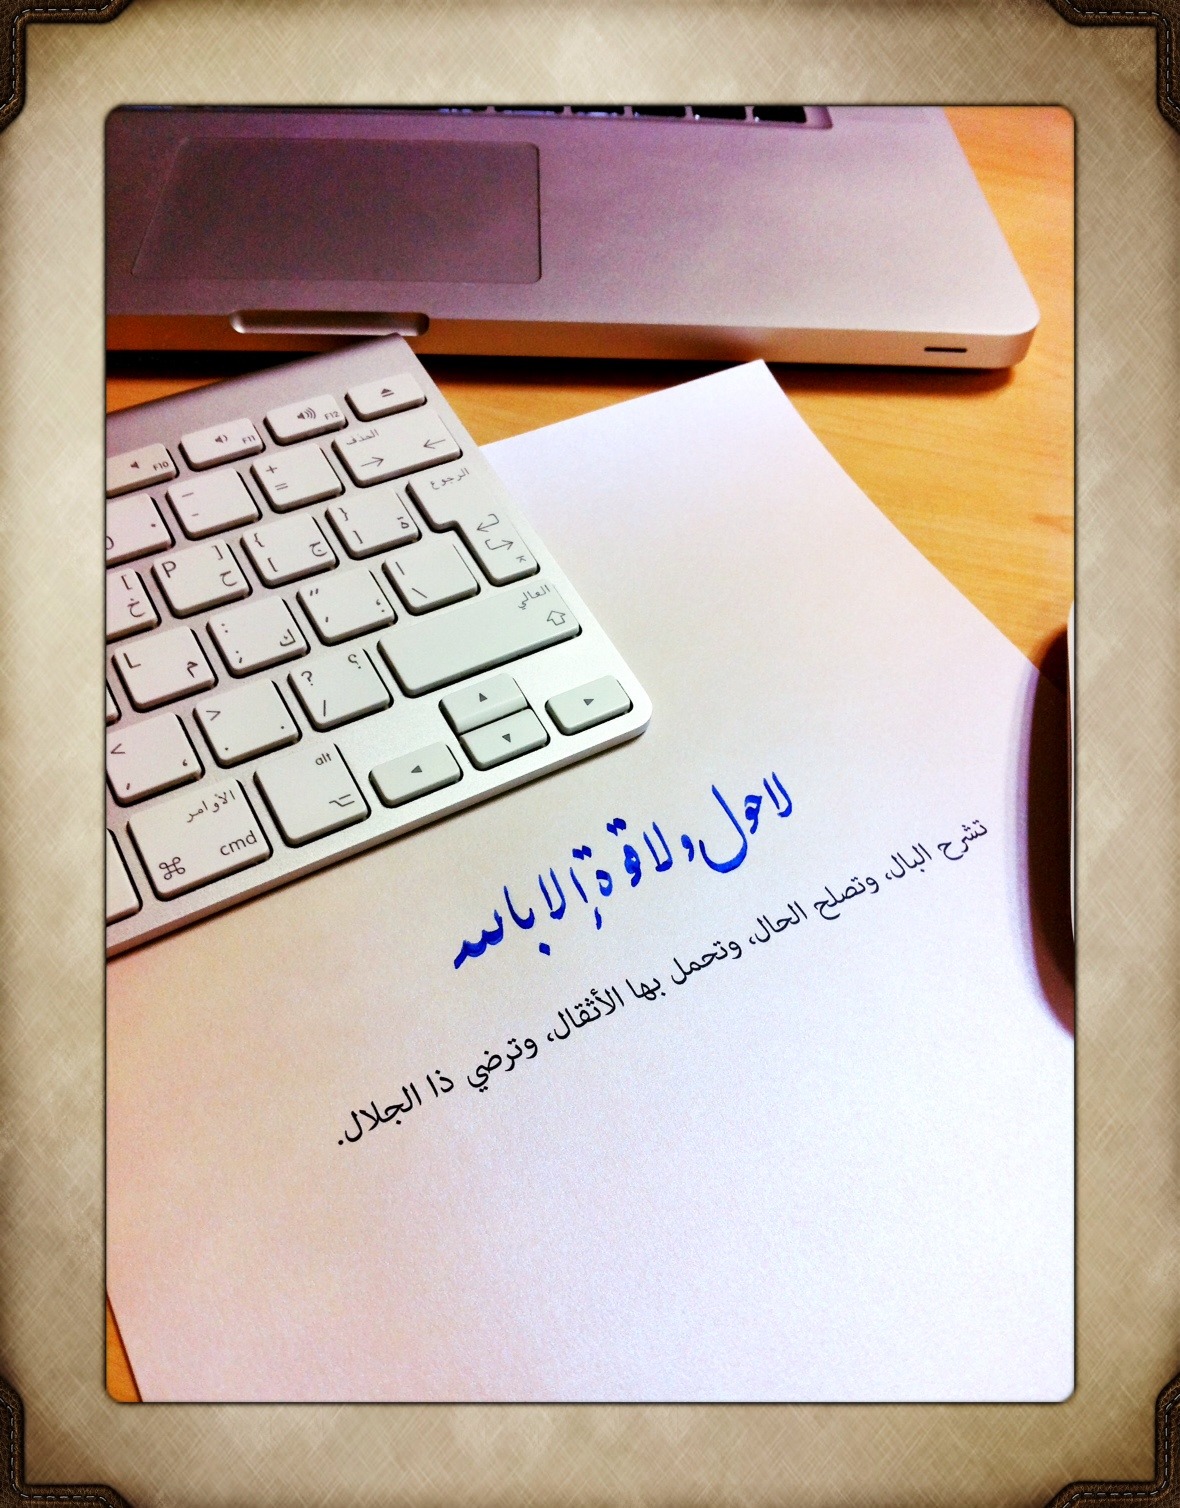 F10
F11
F12
الحذف
الرجوع
-
+
=
P
]
ح
[
خ
{
[
ج
}
]
ة
L
م
:
;
ك
"
,
؛
|
\
العالي
<
,
،
>
.
.
?
/
؟
الأوامر
cmd
alt
لا حول ولا قوة إلا بالله
تشرح البال، وتصلح الحال، وتحمل بها الأثقال، وترضي ذا الجلال.